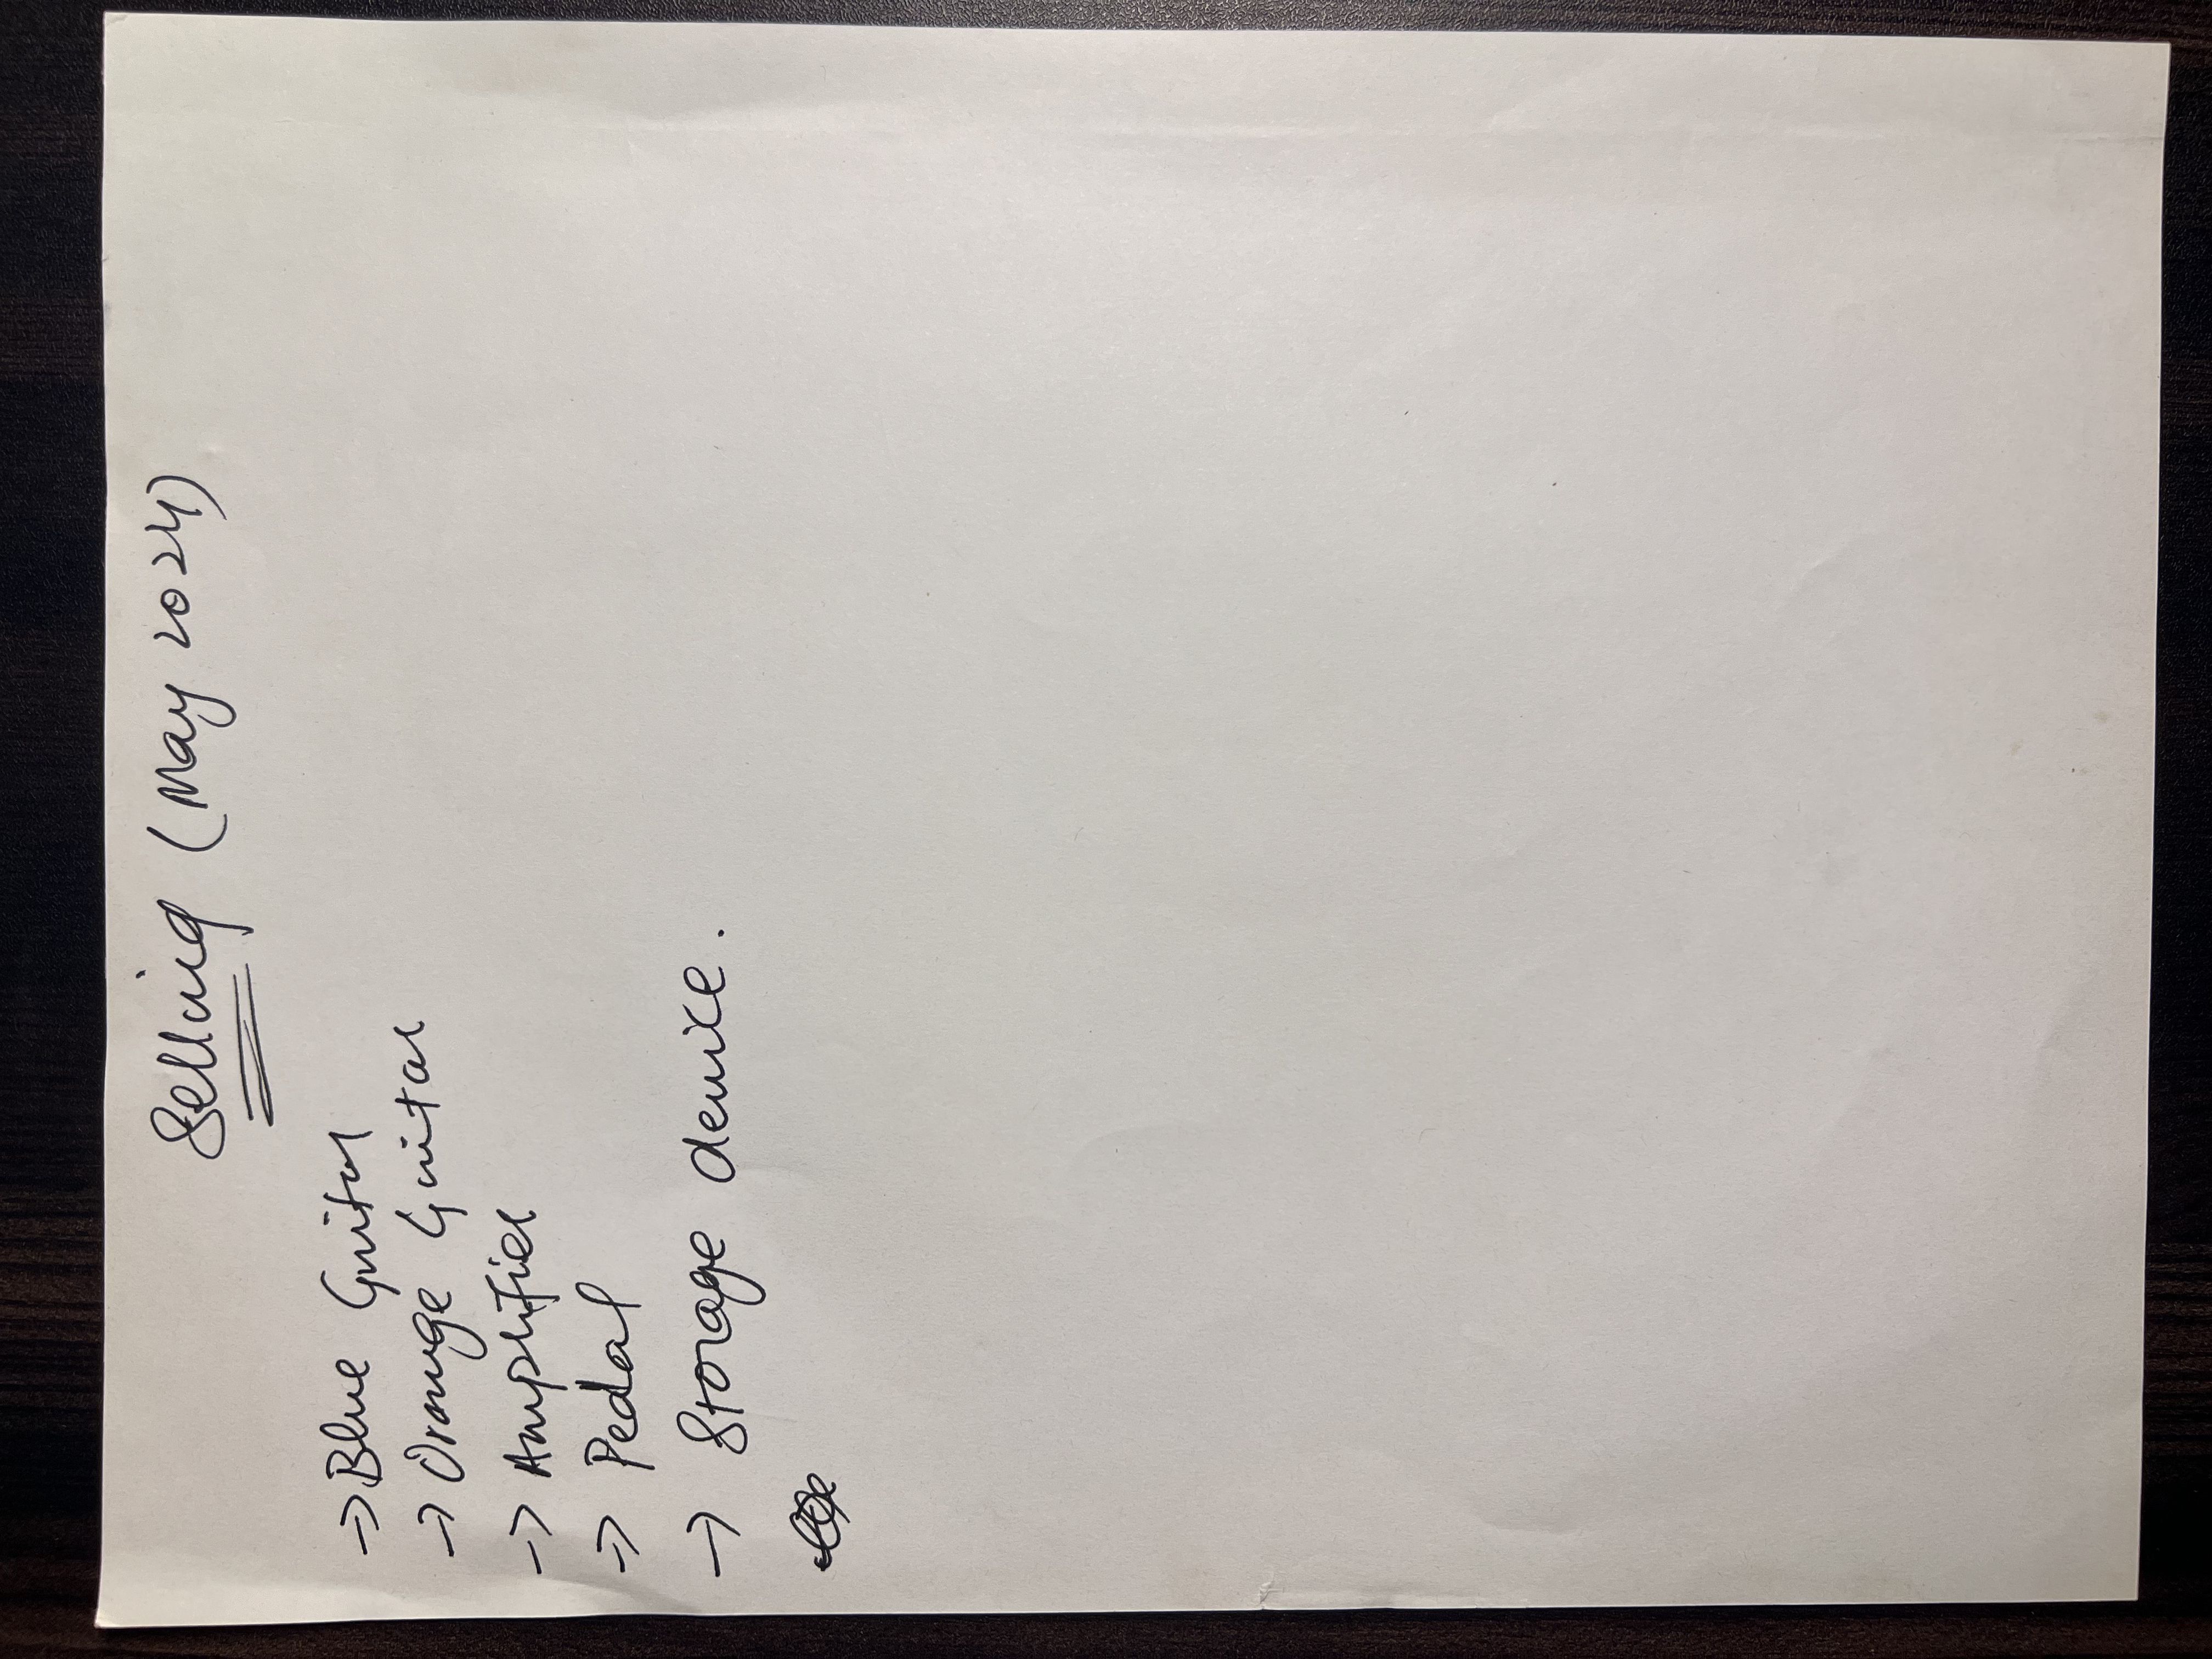 Selling (May 2024)
→ Blue Guitar
→ Orange Guitar
→ Amplifier
→ Pedal
→ Storage device.